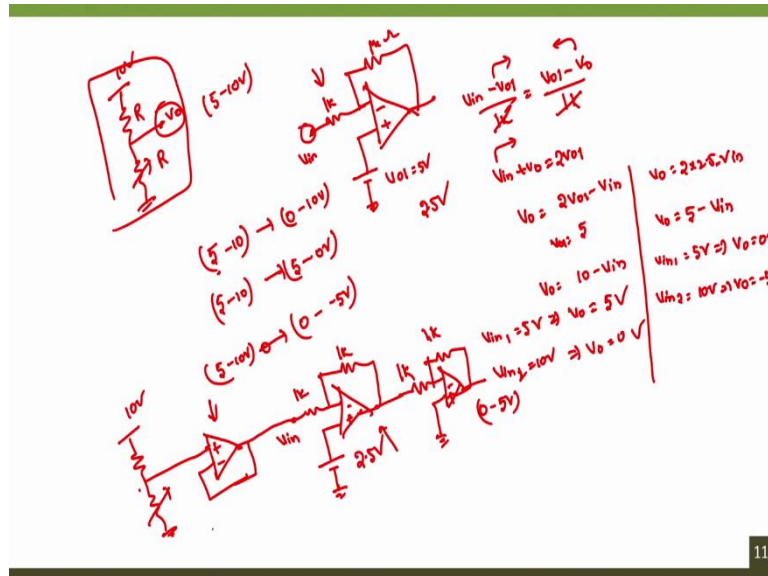 10V
R
Vo
R
(5-10V)
1k
Vin
Vo1 = 5V
2.5V
Vin - Vo1 / 1k = Vo1 - Vo / 1k
Vin + Vo = 2Vo1
Vo = 2Vo1 - Vin
Vo1 = 5
Vo = 10 - Vin
Vin1 = 5V ⇒ Vo = 5V
Vin2 = 10V ⇒ Vo = 0V
Vo = 2x2.5-Vin
Vo = 5 - Vin
Vin1 = 5V ⇒ Vo = 0
Vin2 = 10V ⇒ Vo = -5
(5-10) → (0-10V)
(5-10) → (5-0V)
(5-10V) → (0 - -5V)
10V
Vin
1k
1k
2.5V
1k
1k
(0-5V)
11